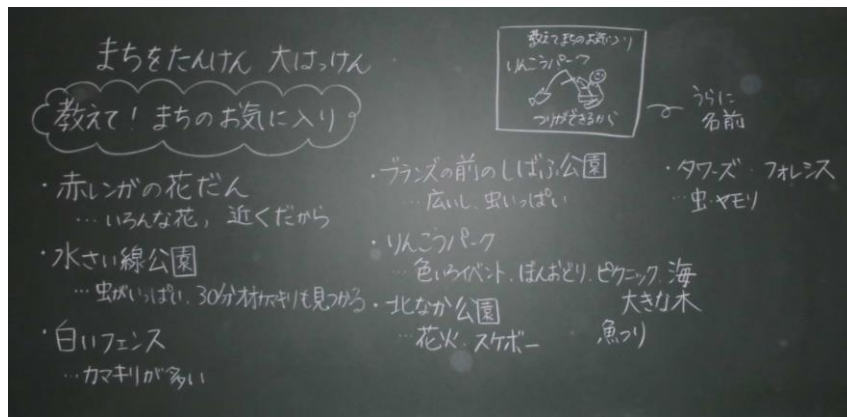 まちをたんけん 大はっけん
教えて！まちのお気に入り
・赤レンガの花だん
…いろんな花，近くだから
・水さい線公園
…虫がいっぱい、30分オオカマキリも見つかる
・白いフェンス
…カマキリが多い
教えてまちのお気に入り
りんこうパーク
つりができるから
うらに
名前
・ブランズの前のしばふ公園
…広いし、虫いっぱい
・りんこうパーク
…色いろイベント、ぼんおどり、ピクニック、海
大きな木
魚つり
・北なか公園
…花火、スケボー
・タワーズ・フォレシス
…虫・ヤモリ